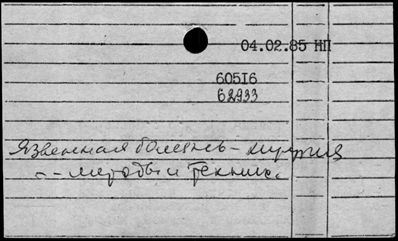 04.02.85 НП
60516
62933
Язвенная болезнь - хирургия
-- методы и техник.